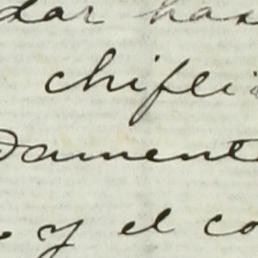 dar has
chifli
dament
y el co